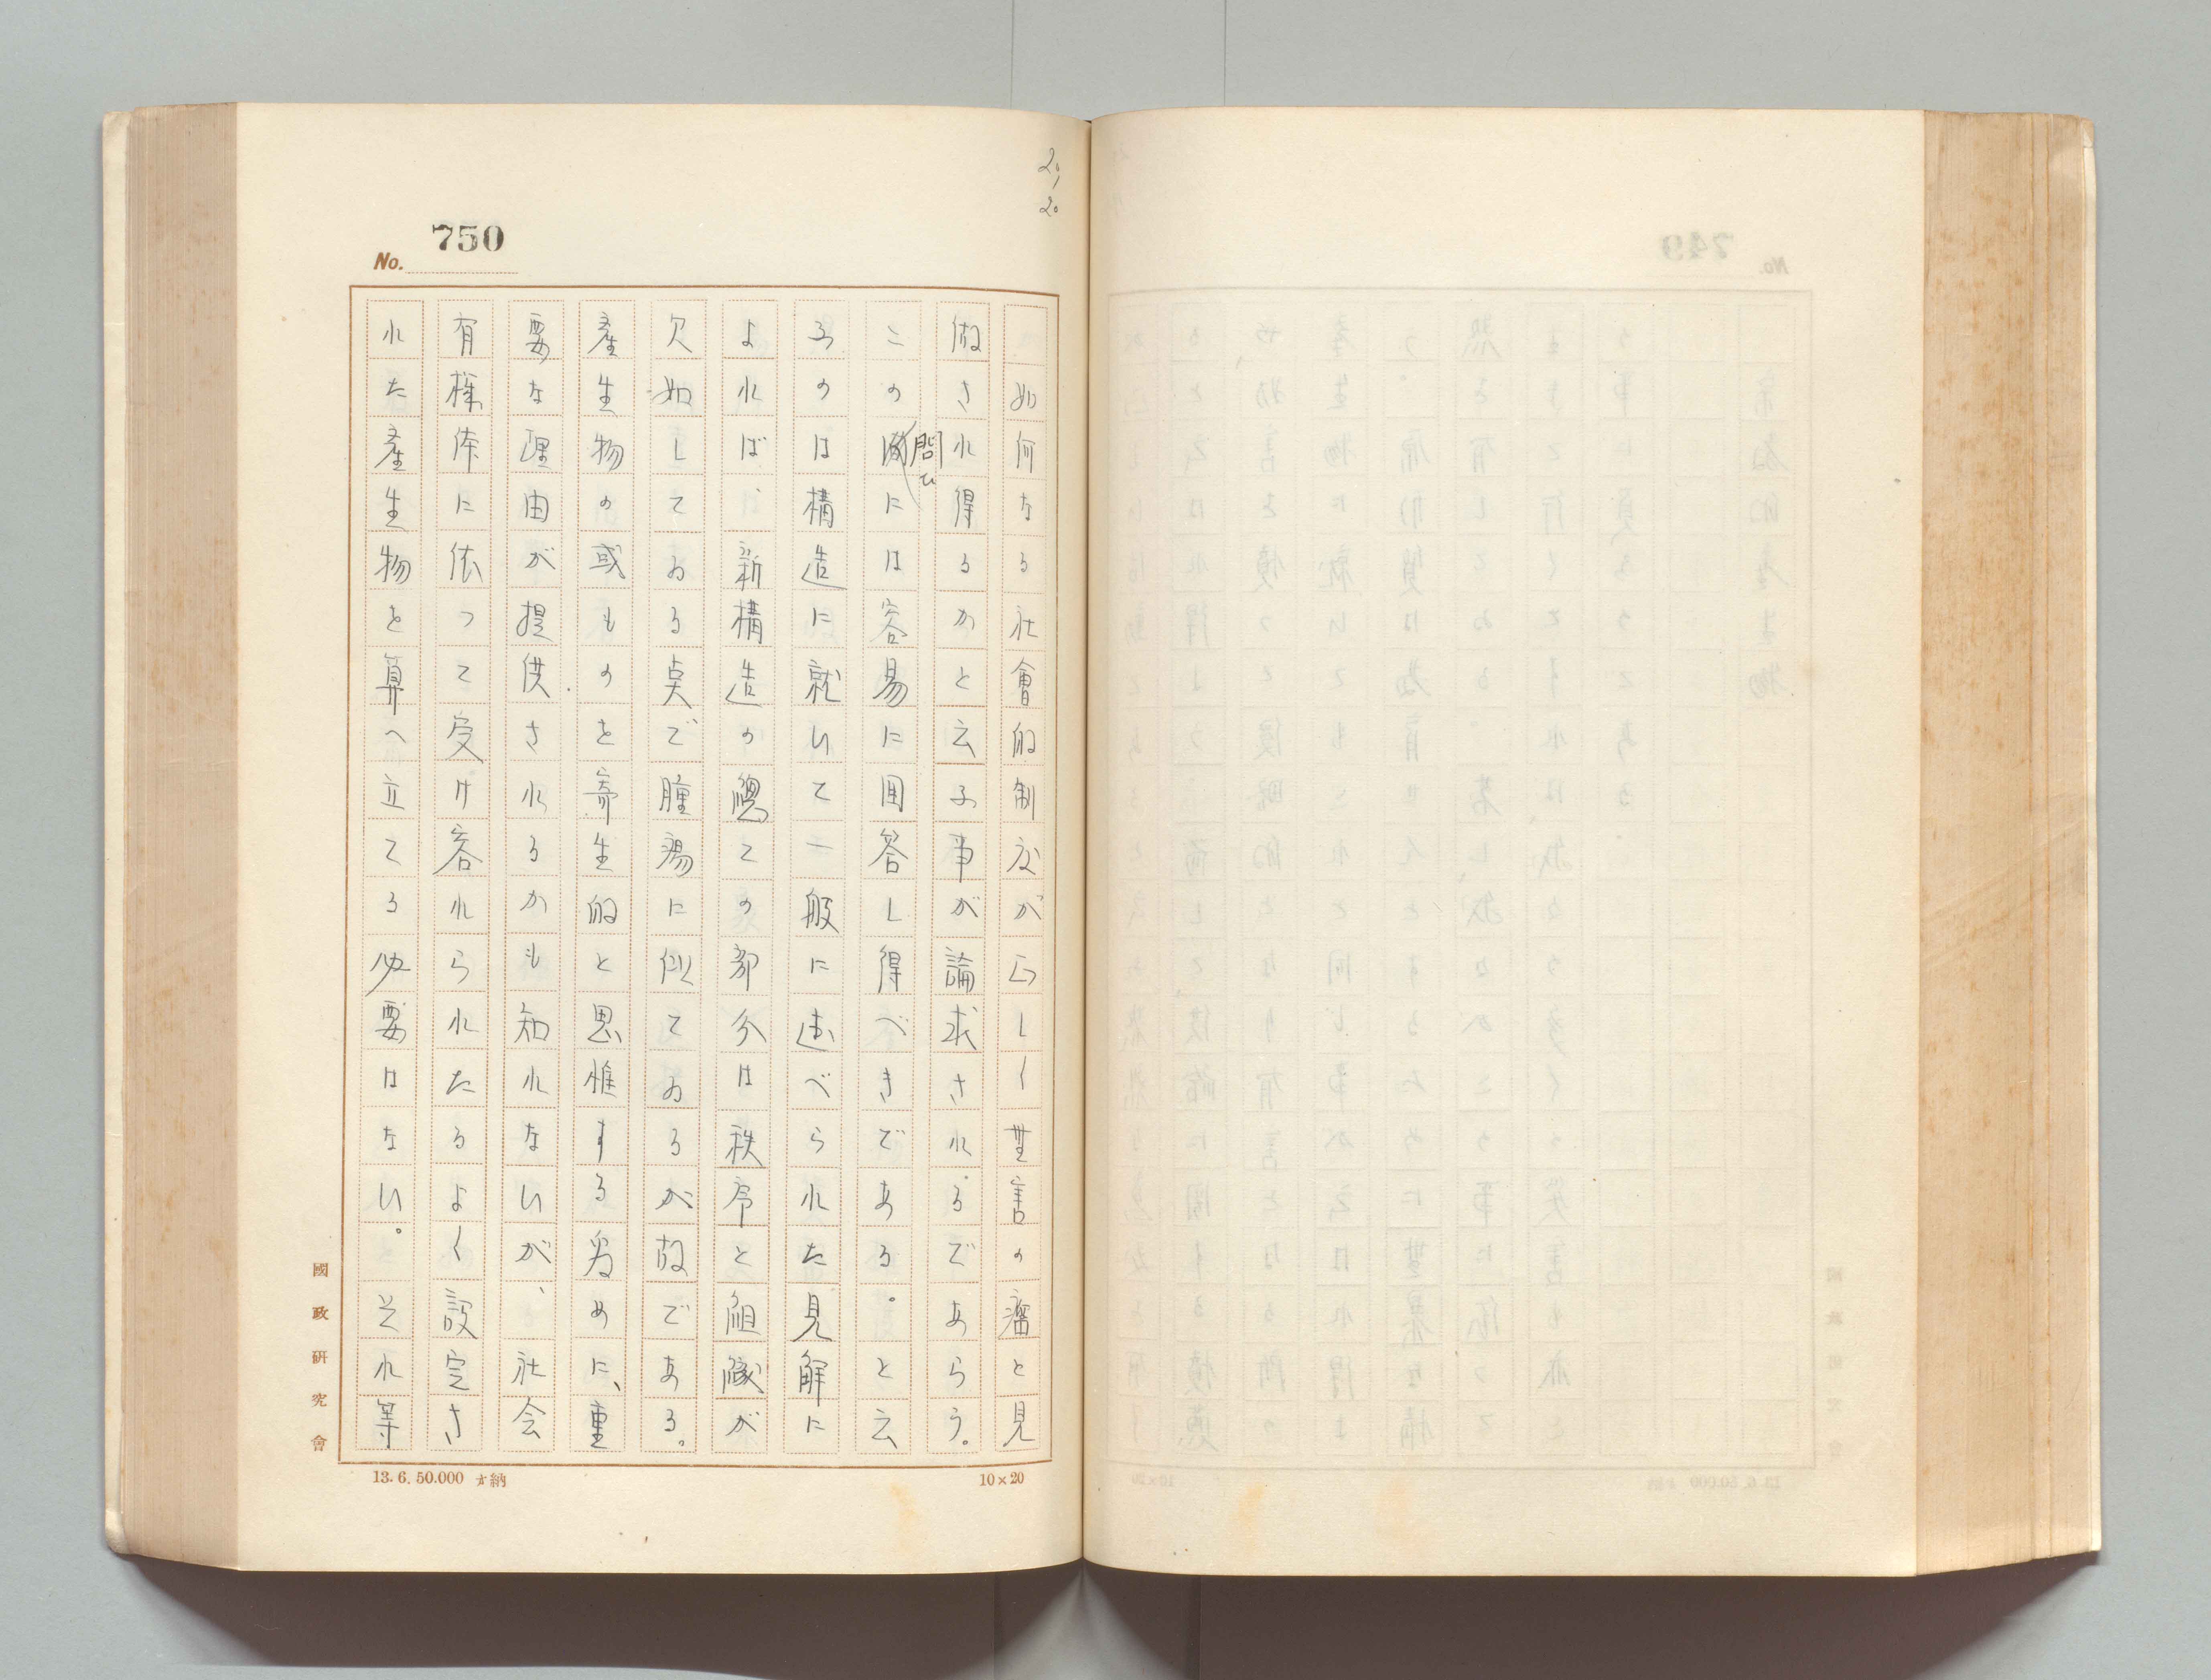 20/20
No. 750
如何なる社會的制度が正しく無害の瘤と見
做され得るかと云ふ事が論求されるであらう。
この問ひには容易に回答し得べきである。と云
ふのは構造に就いて一般に述べられた見解に
よれば、新構造の總ての部分は秩序と組織が
欠如してゐる点で腫瘍に似てゐるが故である。
産生物の或ものを寄生的と思惟する為めに、重
要な理由が提供されるかも知れないが、社会
有機体に依つて受け容れられたるよく設定さ
れた産生物を算へ立てる必要はない。それ等
國政研究會
13.6.50.000 納
10×20